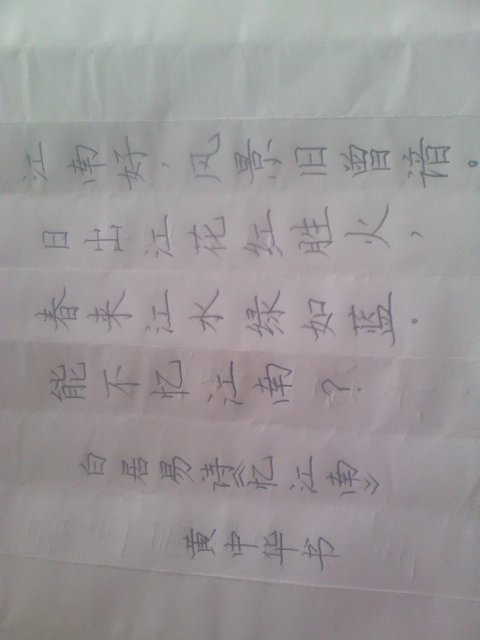 江南好，风景旧曾谙。
日出江花红胜火，
春来江水绿如蓝.
能不忆江南？
白居易诗《忆江南》
黄中华书